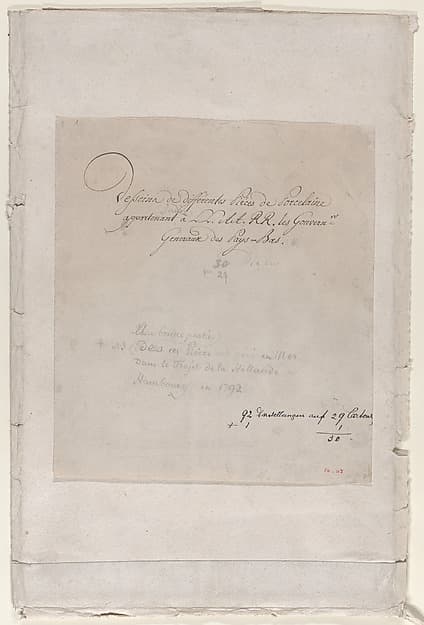 Desseins de différentes Pièces de Porcelaine
appartenant à LL. AA. RR. les Gouvern.rs
Generaux des Pays-Bas.
30
29
Une bonne partie
Des ces Pièces en Mer
Dans le Trajet de la Hollande
Hambourg en 1792
92 Darstellungen auf 29 Cartons
+ 1 1
30